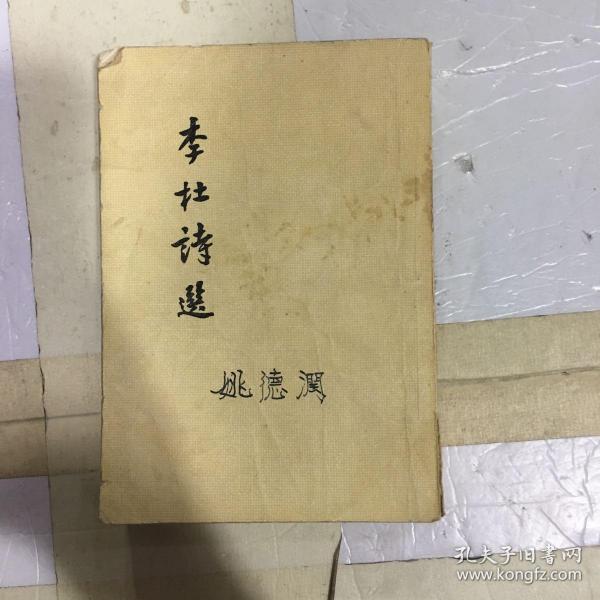 李杜詩選
姚德潤
孔夫子旧書网
www.kongfz.com